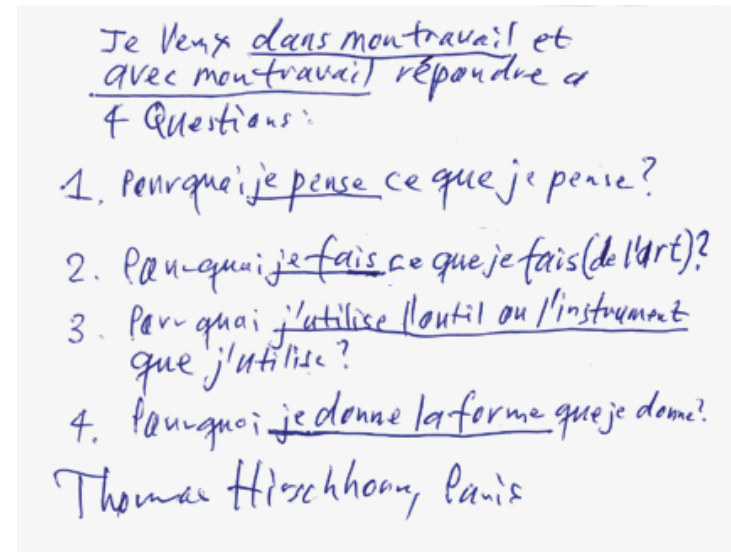 Je Veux dans mon travail et
avec mon travail répondre a
4 Questions:
1. Pourquoi je pense ce que je pense?
2. Pourquoi je fais ce que je fais (de l'art)?
3. Pourquoi j'utilise l'outil ou l'instrument
que j'utilise?
4. Pourquoi je donne la forme que je donne?
Thomas Hirschhorn, Paris